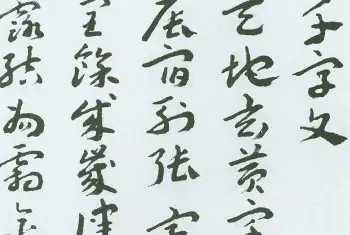 千字文
天地玄黄宇
辰宿列張寒
閏餘成歲律
露結為霜金